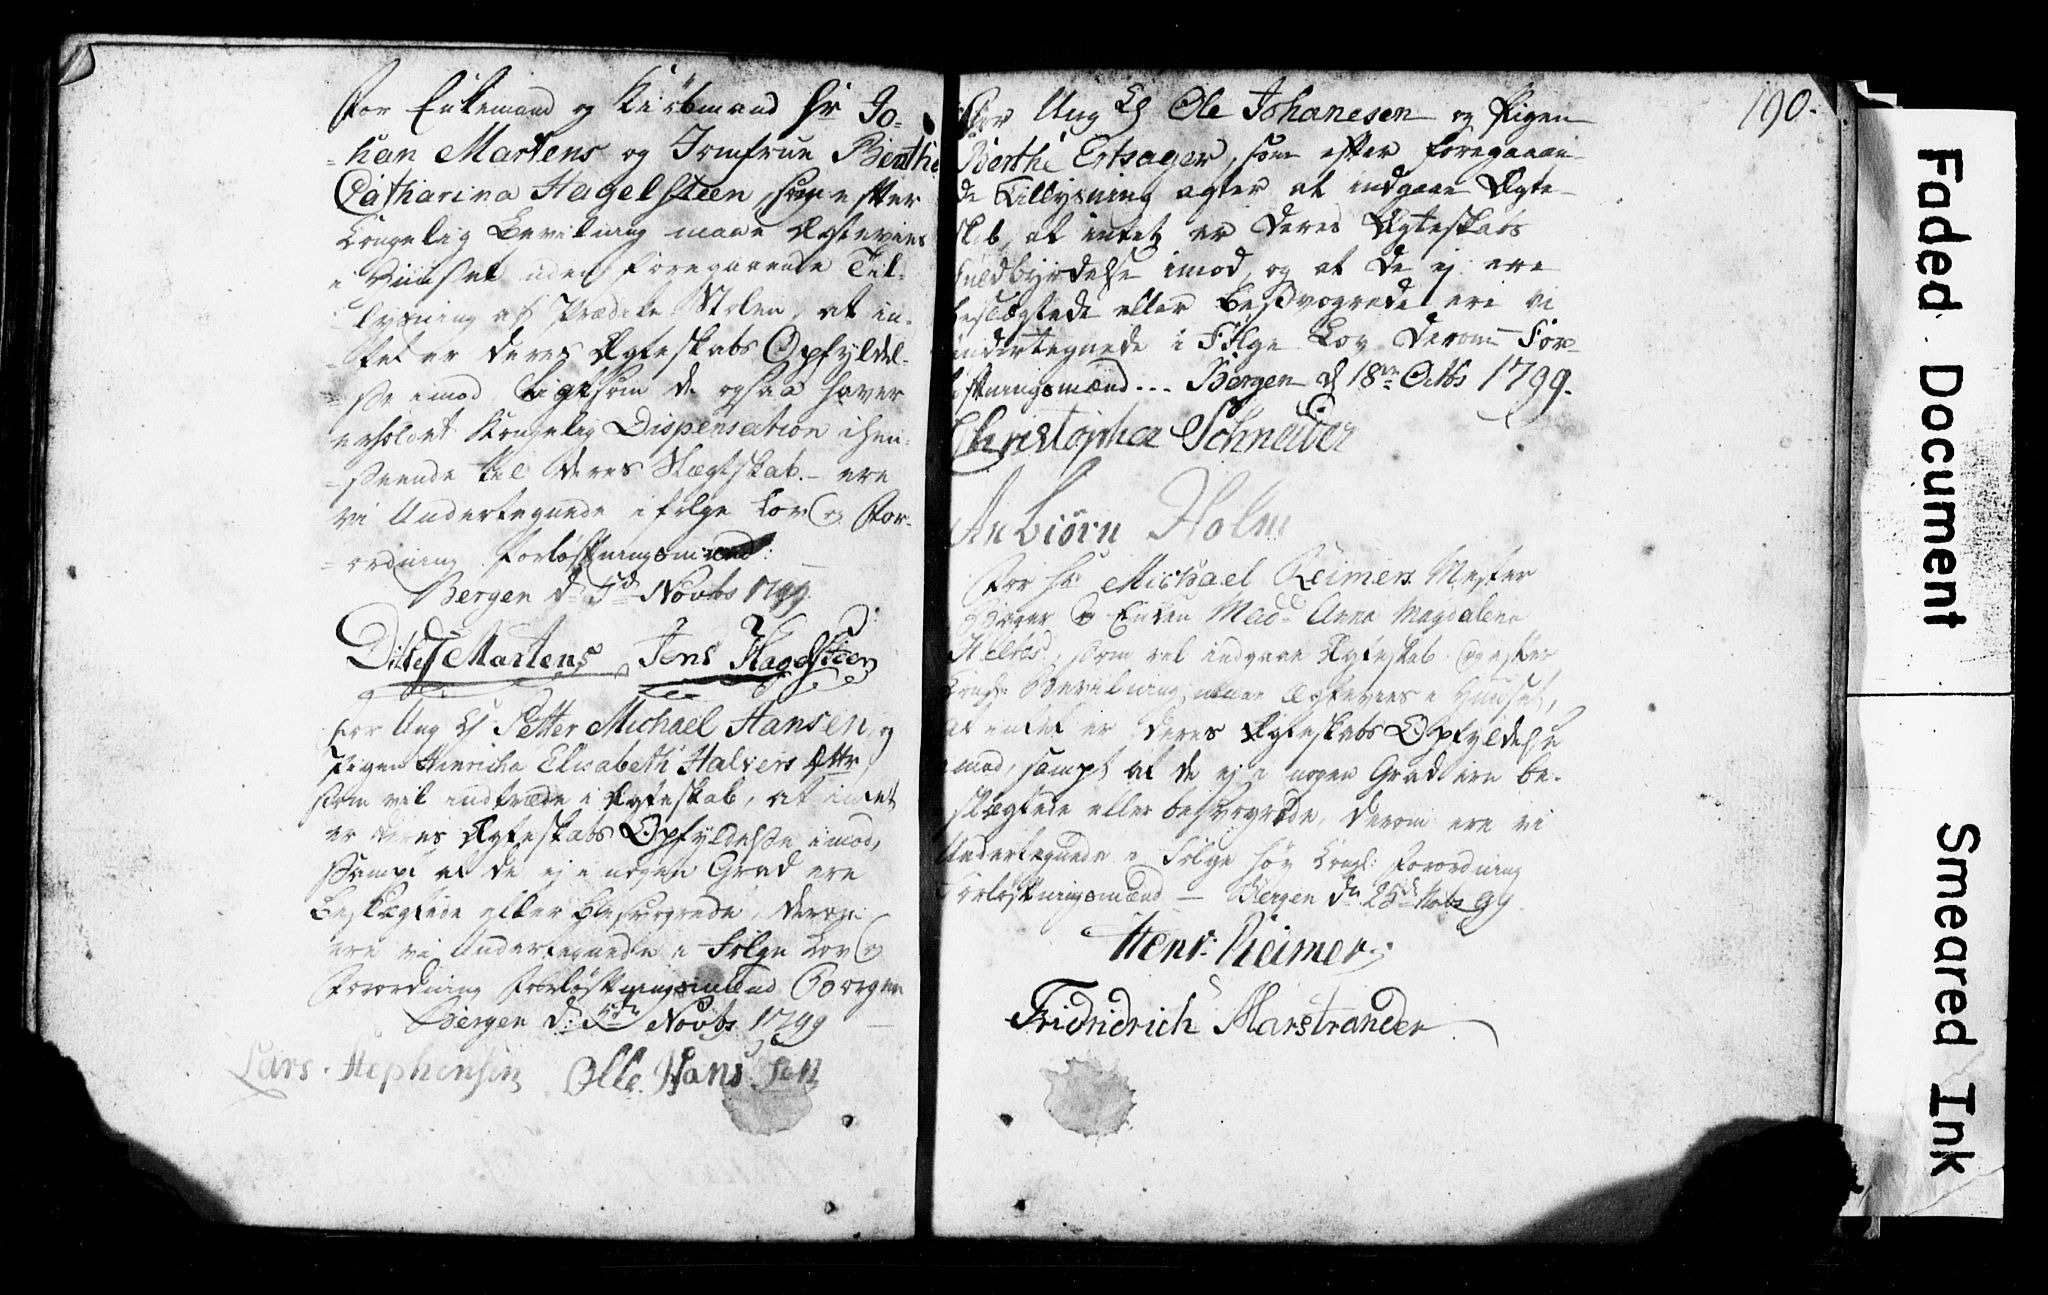 For Enkemand og Kiøbmand Hr Jo-
-han Martens og Jomfrue Benthe
Catharina Hagelsteen, som efter
Kongelig Bevilning maae Ægtevies
i Huuset uden foregaaende Til-
lysning af Prædike Stolen, at in-
-tet er deres Ægteskabs Opfyldel-
-se imod, ligesom de ogsaa haver
erholdet Kongelig Dispensation i hen-
-seende til deres Slægtskab. - ere
vi Undertegnede i følge Lov og For-
-ordning Forløftningsmænd:
Bergen d 5d Novbr 1799.
Ditlef Martens Jens Hagelsteen
For Ung K Petter Michael Hansen, og
Pigen Hinricha Elisabeth Halvers dttr,
som vil indtræde i Ægteskab, at intet
er deres Ægteskabs Opfyldelse imod,
sampt at de ej i nogen Grad ere
Beslægtede eller Besvogrede, derom
ere vi Undertegnede i Følge Lov og
Forordning Forløftningsmænd Borgen
Bergen d: 5te Novbr 1799
Lars Stephensen Olle Hans Sen
190.
For Ung K Ole Johanesen og Pigen
Berthe Ertsager, som efter foregaaen-
de Tillysning agter at indgaae Ægte-
skab, at intet er deres Ægteskabs
fuldbyrdelse imod, og at de ej ere
beslægtede eller besvogrede ere vi
undertegnede i Følge Lov derom For-
løftningsmænd... Bergen d 18de Octbr 1799.
Christopher Schneider
Anbiørn Holm
For Hr Michael Reimers Mester
Bager og Enken Madd Anna Magdalena
som vil indgaae Ægteskab og efter
Kongl: Bevilning maae Ægtevies i Huuset,
at intet er deres Ægteskabs Opfyldelse
imod, sampt at de ej i nogen Grad ere be-
slægtede eller besvogrede, derom ere vi
Undertegnede i Følge høy Kongl: Forordning
Forløftningsmænd — Bergen dn 25de Nobr 99
Henr: Reimers
Fridridrich Marstrander
Faded Document
Smeared Ink